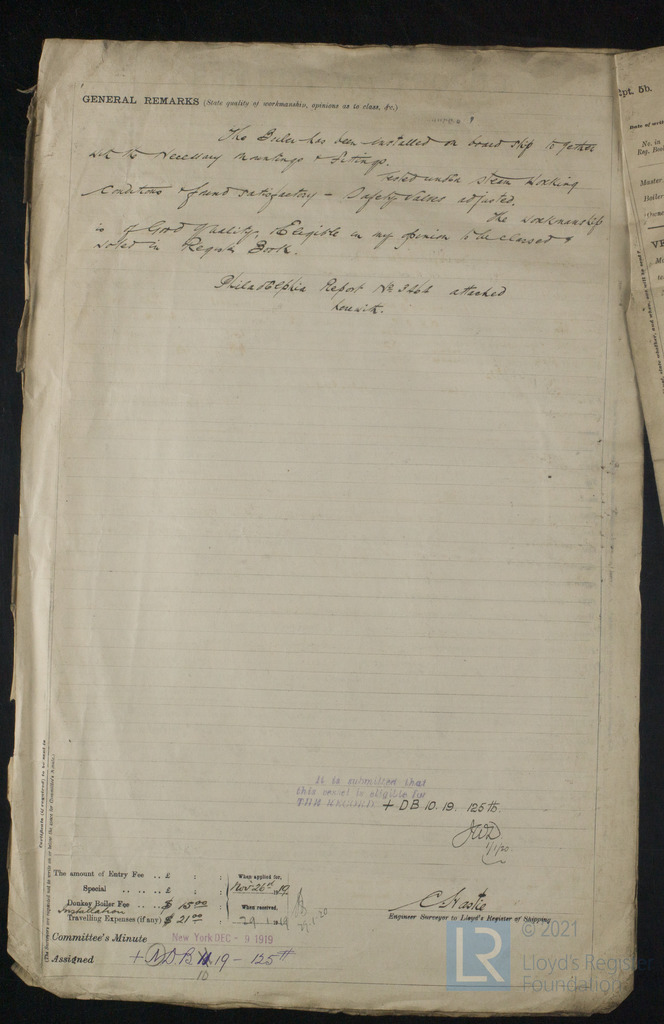 GENERAL REMARKS (State quality of workmanship, opinions as to class, &c.)
The Boiler has been installed on board ship together
with the necessary mountings & fittings.
Tested under steam working
conditions & found satisfactory – Safety Valves adjusted.
The workmanship
is of Good Quality, Eligible in my opinion to be classed &
noted in Register Book.
Philadelphia Report No 3462 attached
herewith.
It is submitted that
this vessel is eligible for
THE RECORD. + DB 10.19. 125 lb.
JWD
1/1/20
The amount of Entry Fee .. £ : :
Special .. .. .. £ : :
Donkey Boiler Fee .. .. $ 15.00
Installation
Travelling Expenses (if any) $ 21.00
When applied for,
Nov 26th 19
When received,
29.1.20
C Hastie
Engineer Surveyor to Lloyd's Register of Shipping
Committee's Minute New York DEC - 9 1919
Assigned + N.D.B. 19 - 125 lb
10
Rpt. 5b.
Date of
No. in
Reg. Book
Master
Boiler
© 2021
LR
Lloyd's Register
Foundation